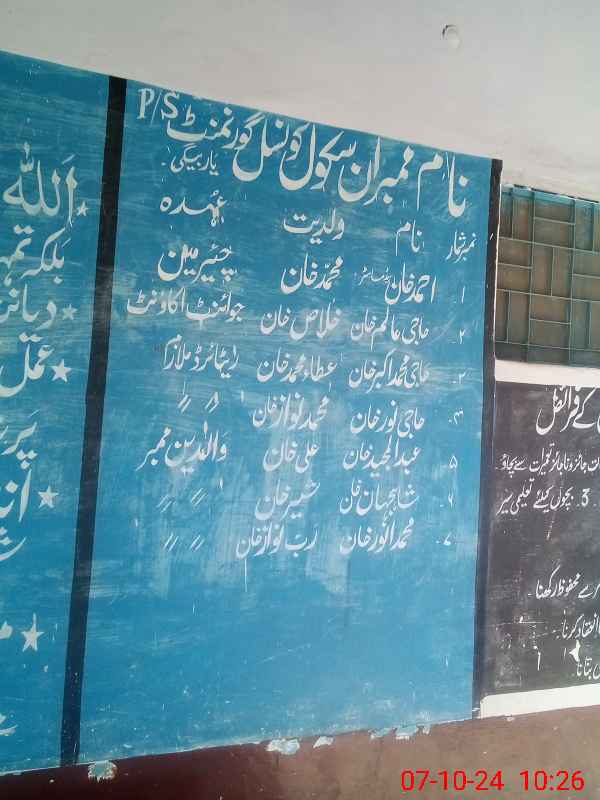 نام ممبران سکول کونسل گورنمنٹ P/S
یاربیگی
نمبرشمار نام ولدیت عہدہ
۱. احمد خان ہیڈماسٹر محمد خان چیئرمین
۲. حاجی عالم خان خلاص خان جوائنٹ اکاؤنٹ
۳. حاجی محمد اکبر خان عطاء محمد خان ریٹائرڈ ملازم
۴. حاجی نور خان محمد نواز خان 〃 〃
۵. عبدالمجید خان علی خان والدین ممبر
۶. شاہجہان خان شیر خان 〃 〃
۷. محمد انور خان رب نواز خان 〃 〃
اللہ
بلکہ
عمل
کے فرائض
3. بچوں کیلئے تعلیمی سیر
سے محفوظ رکھنا۔
انعقاد کرنا۔
بتانا
07-10-24 10:26